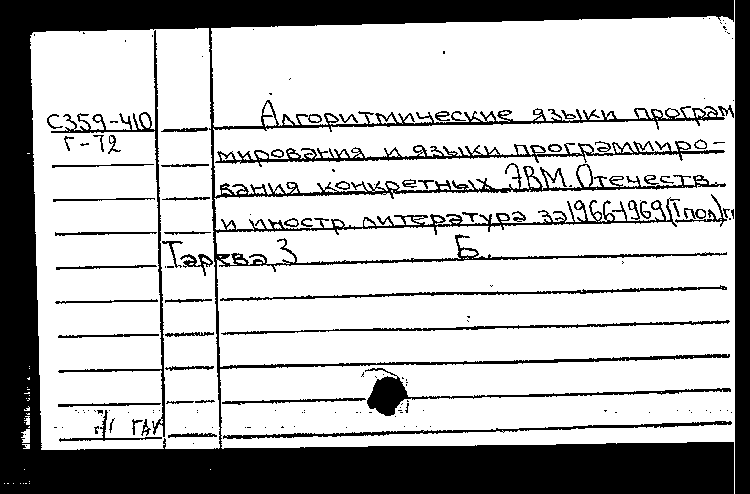 С359-410 Алгоритмические языки програм
Г-72 мирования и языки программиро-
вания конкретных ЭВМ. Отечеств.
и иностр. литература за 1966-1969 (I пол.) гг
Б.
ГАУ